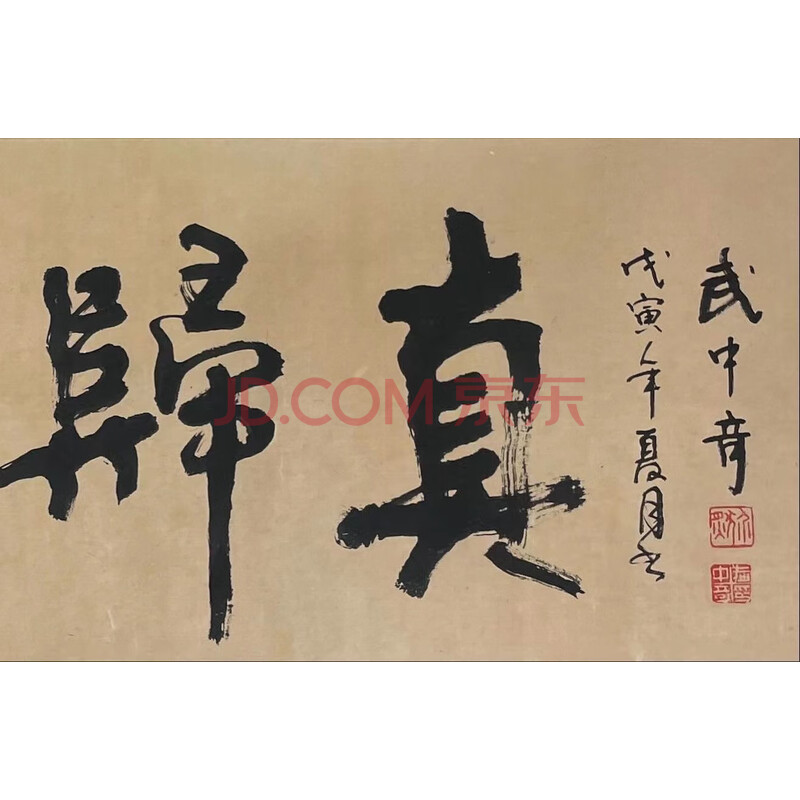 歸真
戊寅年夏月书
武中奇
JD.COM 京东